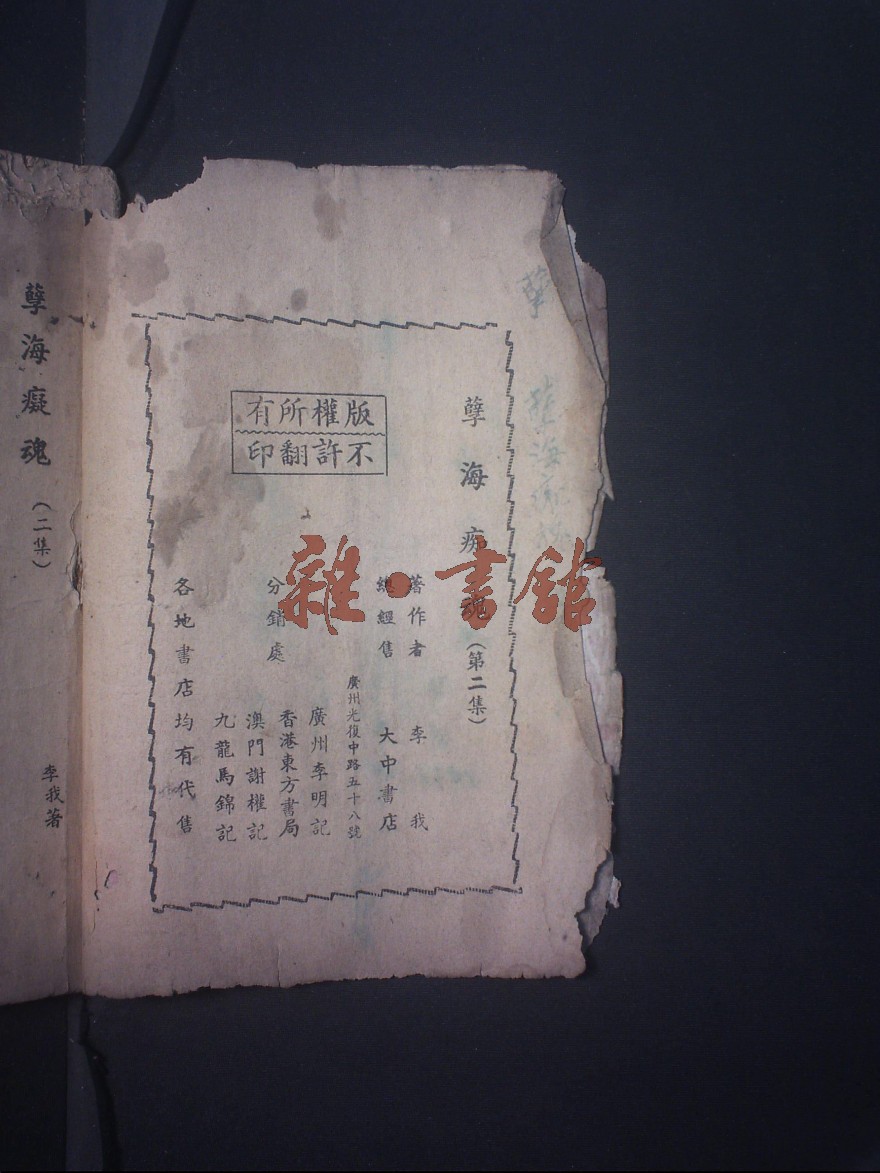 孽海痴魂（第二集）
版權所有
不許翻印
著作者 李我
總經售 大中書店
廣州光復中路五十八號
分銷處
廣州李明記
香港東方書局
澳門謝權記
九龍馬錦記
各地書店均有代售
孽海癡魂（二集）
李我著
雜·書館
孽
孽海